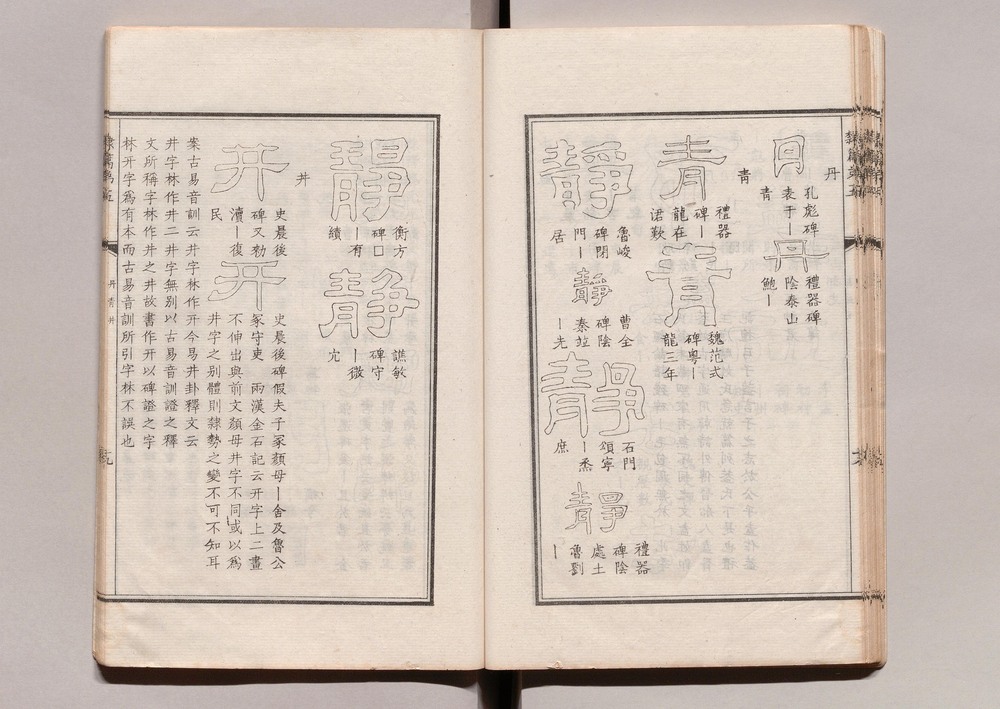 丹
丹
孔彪碑
表于丨
青
丹
禮器碑
陰泰山
鮑丨
青
青
禮器
碑丨
龍在
涒歎
青
魏范式
碑粵丨
龍三年
靜
魯峻
碑閉
門丨
居
靜
曹全
碑陰
丨先
靜
石門
頌寧
丨烝
庶
靜
禮器
碑陰
處士
魯劉
丨
靜
衡方
碑口
丨有
績
靜
譙敏
碑守
丨微
宂
井
井
史晨後
碑又勑
瀆丨復
民
井
史晨後碑假夫子冢顏母丨舍及魯公
冢守吏 兩漢金石記云开字上二畫
不伸出與前文顏母井字不同或以為
井字之別體則隸勢之變不可不知耳
案古易音訓云井字林作开今易井卦釋文云
井字林作井二井字無別以古易音訓證之釋
文所稱字林作井之井故書作开以碑證之字
林开字為有本而古易音訓所引字林不誤也
丹青井